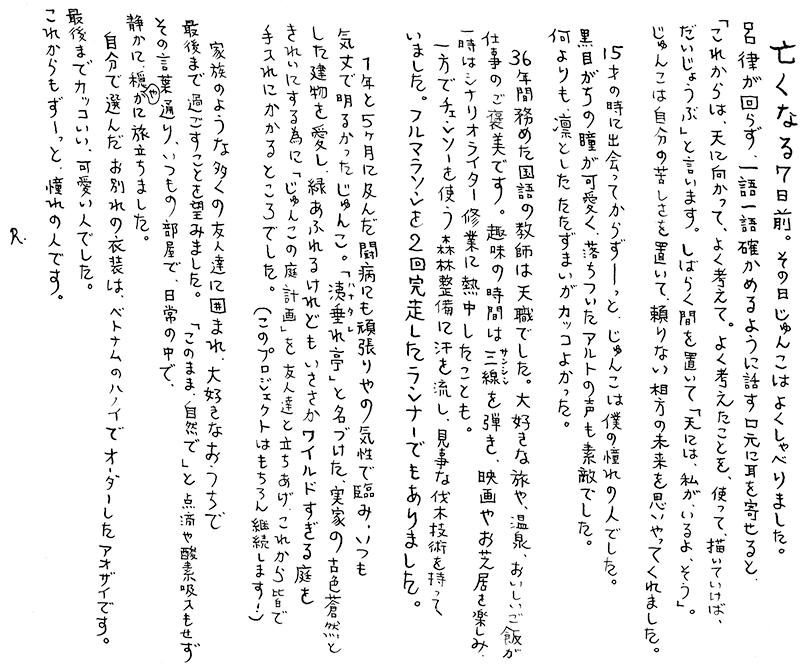 亡くなる7日前。その日じゅんこはよくしゃべりました。
呂律が回らず、一語一語確かめるように話す口元に耳を寄せると、
「これからは、天に向かって、よく考えて。よく考えたことを、使って、描いていけば、
だいじょうぶ」と言います。しばらく間を置いて「天には、私が、いるよ、そう」。
じゅんこは自分の苦しさを置いて、頼りない相方の未来を思いやってくれました。
15才の時に出会ってからずーっと、じゅんこは僕の憧れの人でした。
黒目がちの瞳が可愛く、落ちついたアルトの声も素敵でした。
何よりも、凛としたたたずまいがカッコよかった。
36年間務めた国語の教師は天職でした。大好きな旅や、温泉、おいしいご飯が
仕事のご褒美です。趣味の時間は三線を弾き、映画やお芝居を楽しみ、
サンシン
一時はシナリオライター修業に熱中したことも。
一方でチェンソーを使う森林整備に汗を流し、見事な伐木技術を持って
いました。フルマラソンを2回完走したランナーでもありました。
1年と5ヶ月に及んだ闘病にも頑張りやの気性で臨み、いつも
気丈で明るかったじゅんこ。「洟垂れ亭」と名づけた、実家の古色蒼然と
ハナタレ
した建物を愛し、緑あふれるけれどもいささかワイルドすぎる庭を
きれいにする為に「じゅんこの庭計画」を友人達と立ちあげ、これから皆で
手入れにかかるところでした。(このプロジェクトはもちろん継続します!)
家族のような多くの友人達に囲まれ、大好きなおうちで
最後まで過ごすことを望みました。「このまま、自然で」と点滴や酸素吸入もせず
その言葉通り、いつもの部屋で、日常の中で、
静かに、穏やかに旅立ちました。
自分で選んだお別れの衣装は、ベトナムのハノイでオーダーしたアオザイです。
最後までカッコいい、可愛い人でした。
これからもずーっと、憧れの人です。
R.